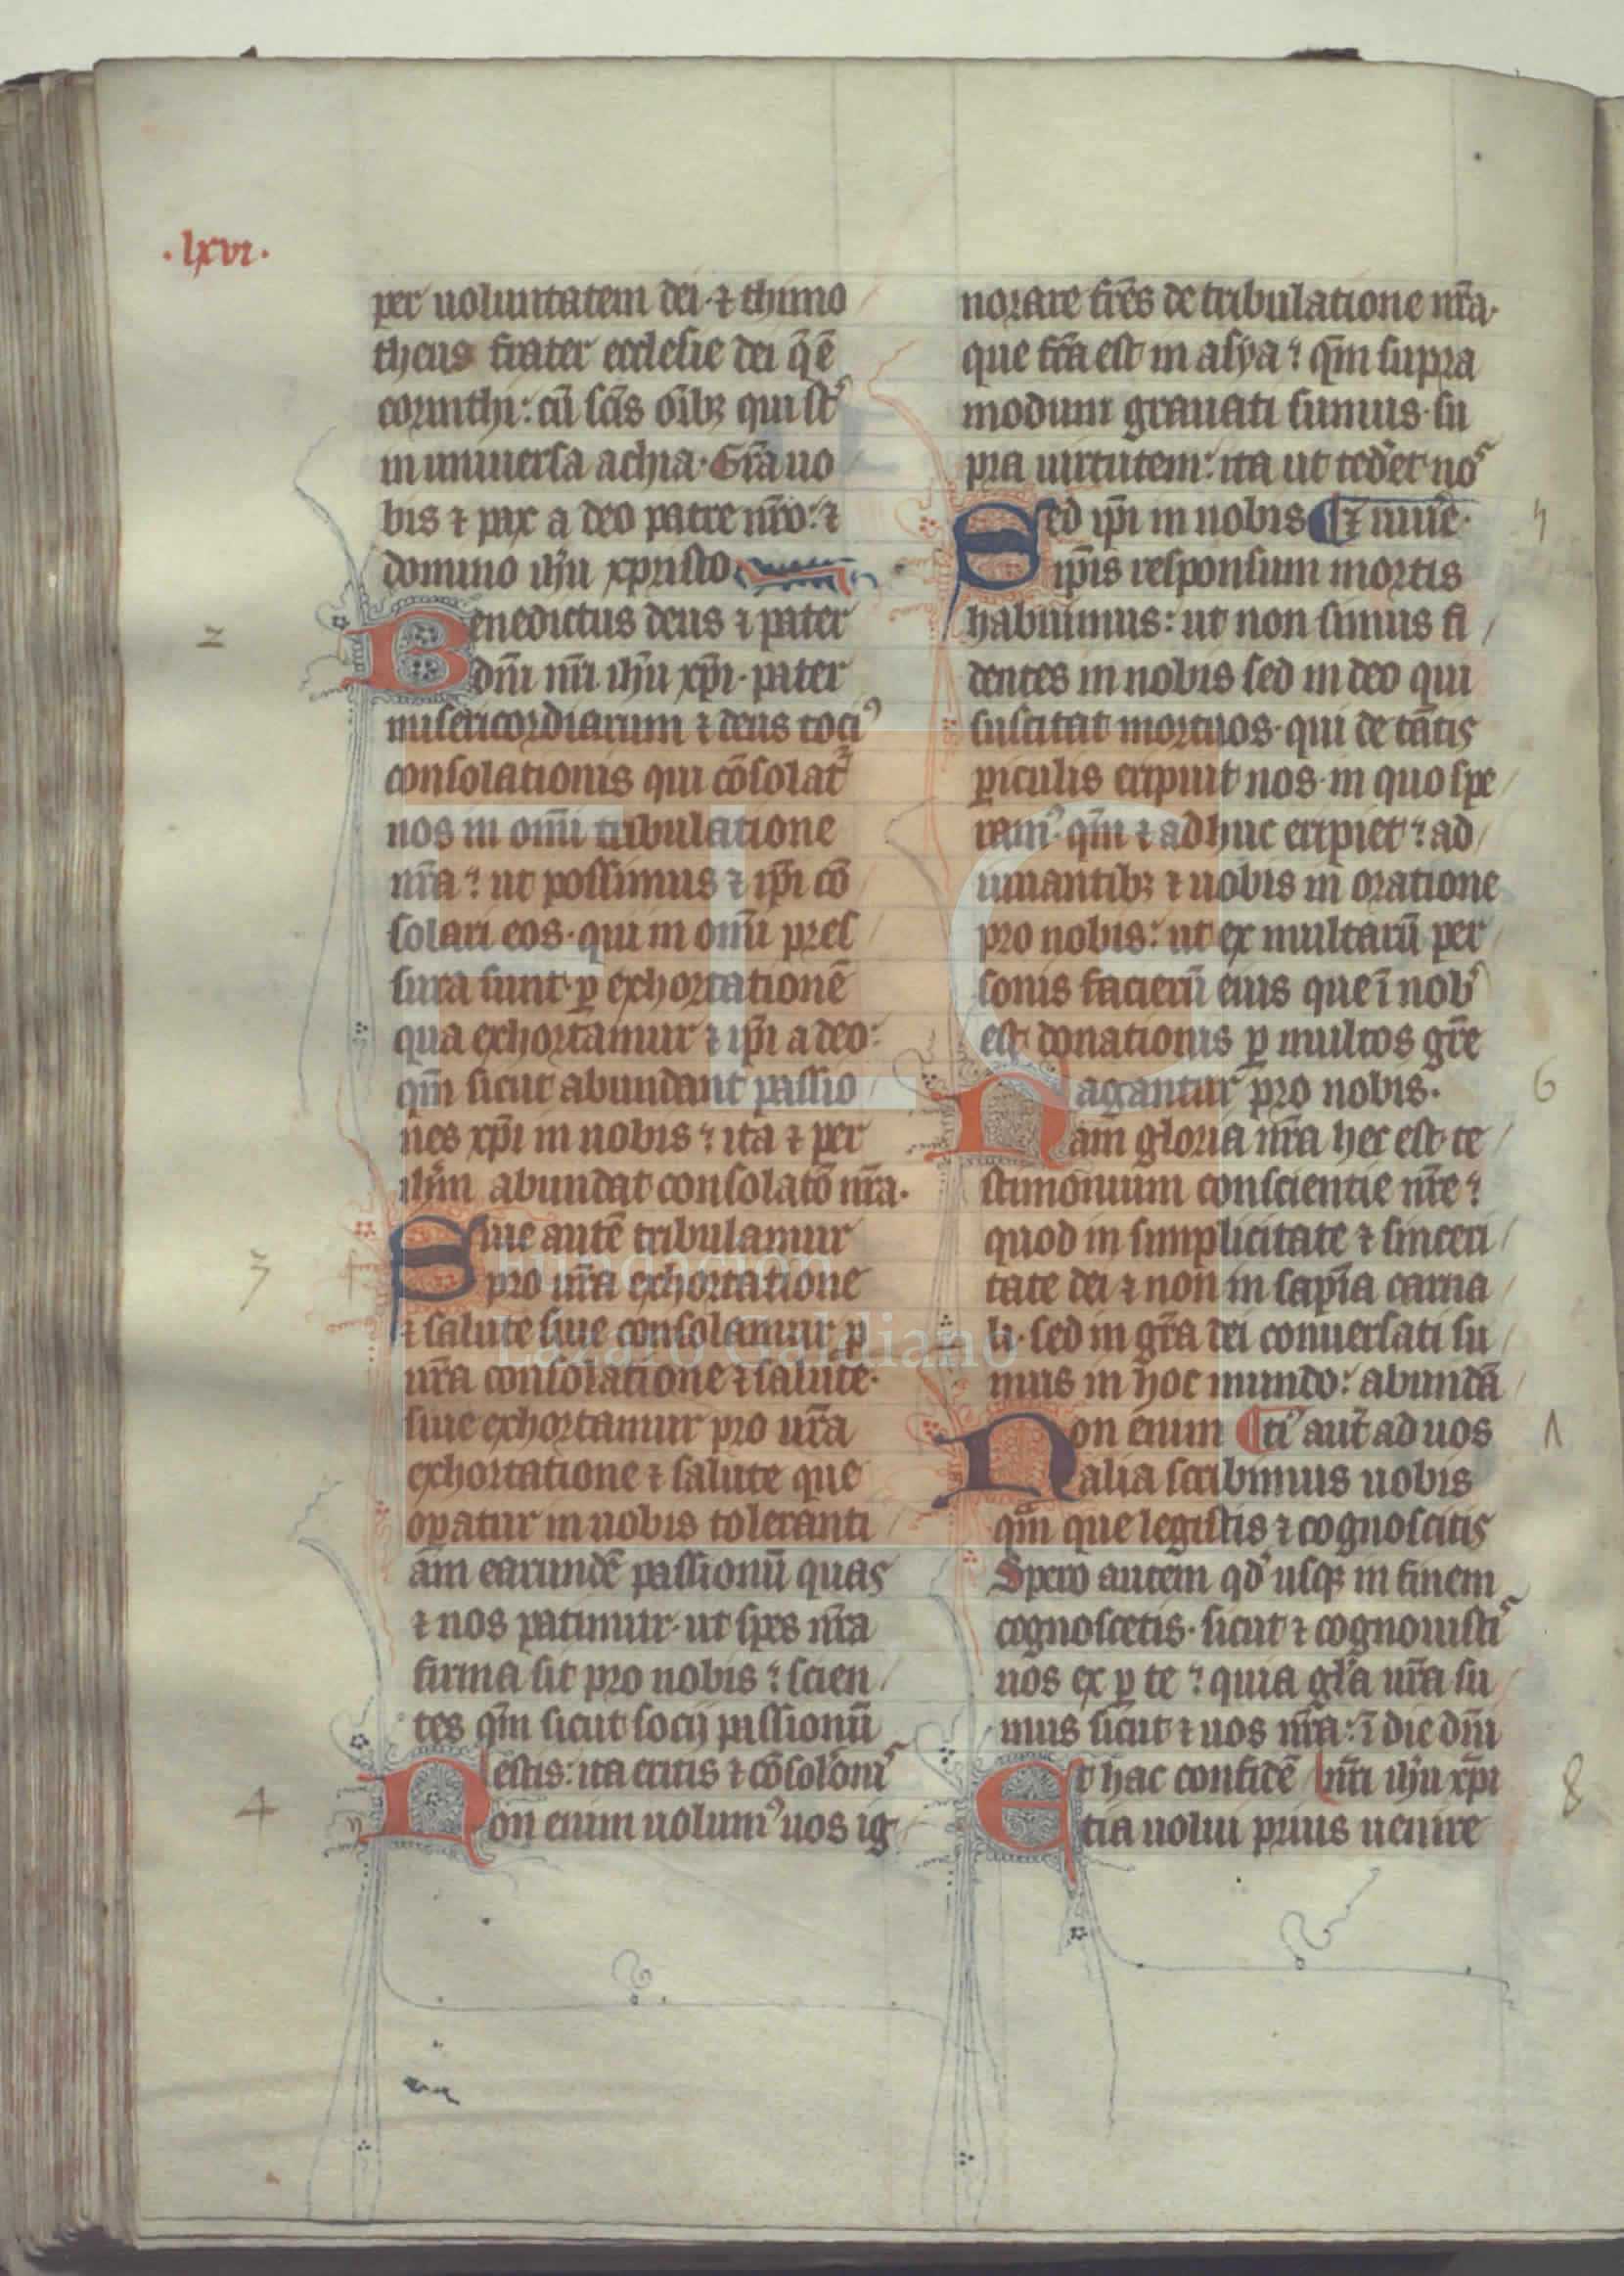 ·lxvi·
per uoluntatem dei ⁊ thimo
theus frater ecclesie dei q̄ ē
corinthi: cū scīs oīb; qui st̄
in uniuersa achia· Gr̄a uo
bis ⁊ pax a deo patre nr̄o: ⁊
domino ihū xpristo
Benedictus deus ⁊ pater
dn̄i nr̄i ihū xp̄i· pater
misericordiarum ⁊ deus toci᾽
consolationis qui cōsolat᷑
nos in om̄i tribulatione
nr̄a: ut possimus ⁊ ip̄i cō
solari eos· qui in om̄i pres
sura sunt· ꝑ exhortationē
qua exhortamur ⁊ ip̄i a deo:
qm̄ sicut abundant passio
nes xp̄i in nobis: ita ⁊ per
ihm̄ abundat consolatō nr̄a·
Siue autē tribulamur
pro ur̄a exhortatione
⁊ salute siue consolamur ꝑ
ur̄a consolatione ⁊ salute·
siue exhortamur pro ur̄a
exhortatione ⁊ salute que
oꝑatur in uobis toleranti
am earundē passionū quas
⁊ nos patimur· ut spes nr̄a
firma sit pro nobis: scien
tes qm̄ sicut socij passionū
estis: ita eritis ⁊ cōsolōnis
Non enim uolum᾽ uos ig
norare fr̄es de tribulatione nr̄a·
que fc̄a est in asya: qm̄ supra
modum grauati sumus· su
pra uirtutem: ita ut tederet nos
Sed ip̄i in nobis ¶ ⁊ uiuē·
ip̄is responsum mortis
habuimus: ut non simus fi
dentes in nobis sed in deo qui
suscitat mortuos· qui de tātis
ꝑiculis eripuit nos· in quo spe
ram᾽ qm̄ ⁊ adhuc eripiet: ad
iuuantib; ⁊ uobis in oratione
pro nobis: ut ex multarū per
sonis facierū eius que ī nob᾽
est donationis ꝑ multos gr̄e
agantur pro nobis·
Nam gloria nr̄a hec est te
stimonium conscientie nr̄e:
quod in simplicitate ⁊ sinceri
tate dei ⁊ non in sapīa carna
li· sed in gr̄a dei conuersati su
mus in hoc mundo: abundā
Non enim ¶ ti᾽ aut̄ ad uos
alia scribimus uobis
qm̄ que legistis ⁊ cognoscitis
Spero autem qd᾽ usq; in finem
cognoscetis· sicut ⁊ cognouistis
nos ex ꝑte: quia gl̄a ur̄a su
mus sicut ⁊ uos nr̄a: ī die dn̄i
Et hac confidē nr̄i ihū xp̄i
tia uolui prius uenire
2
3
4
5
6
7
8
FLG
Fundación
Lázaro Galdiano